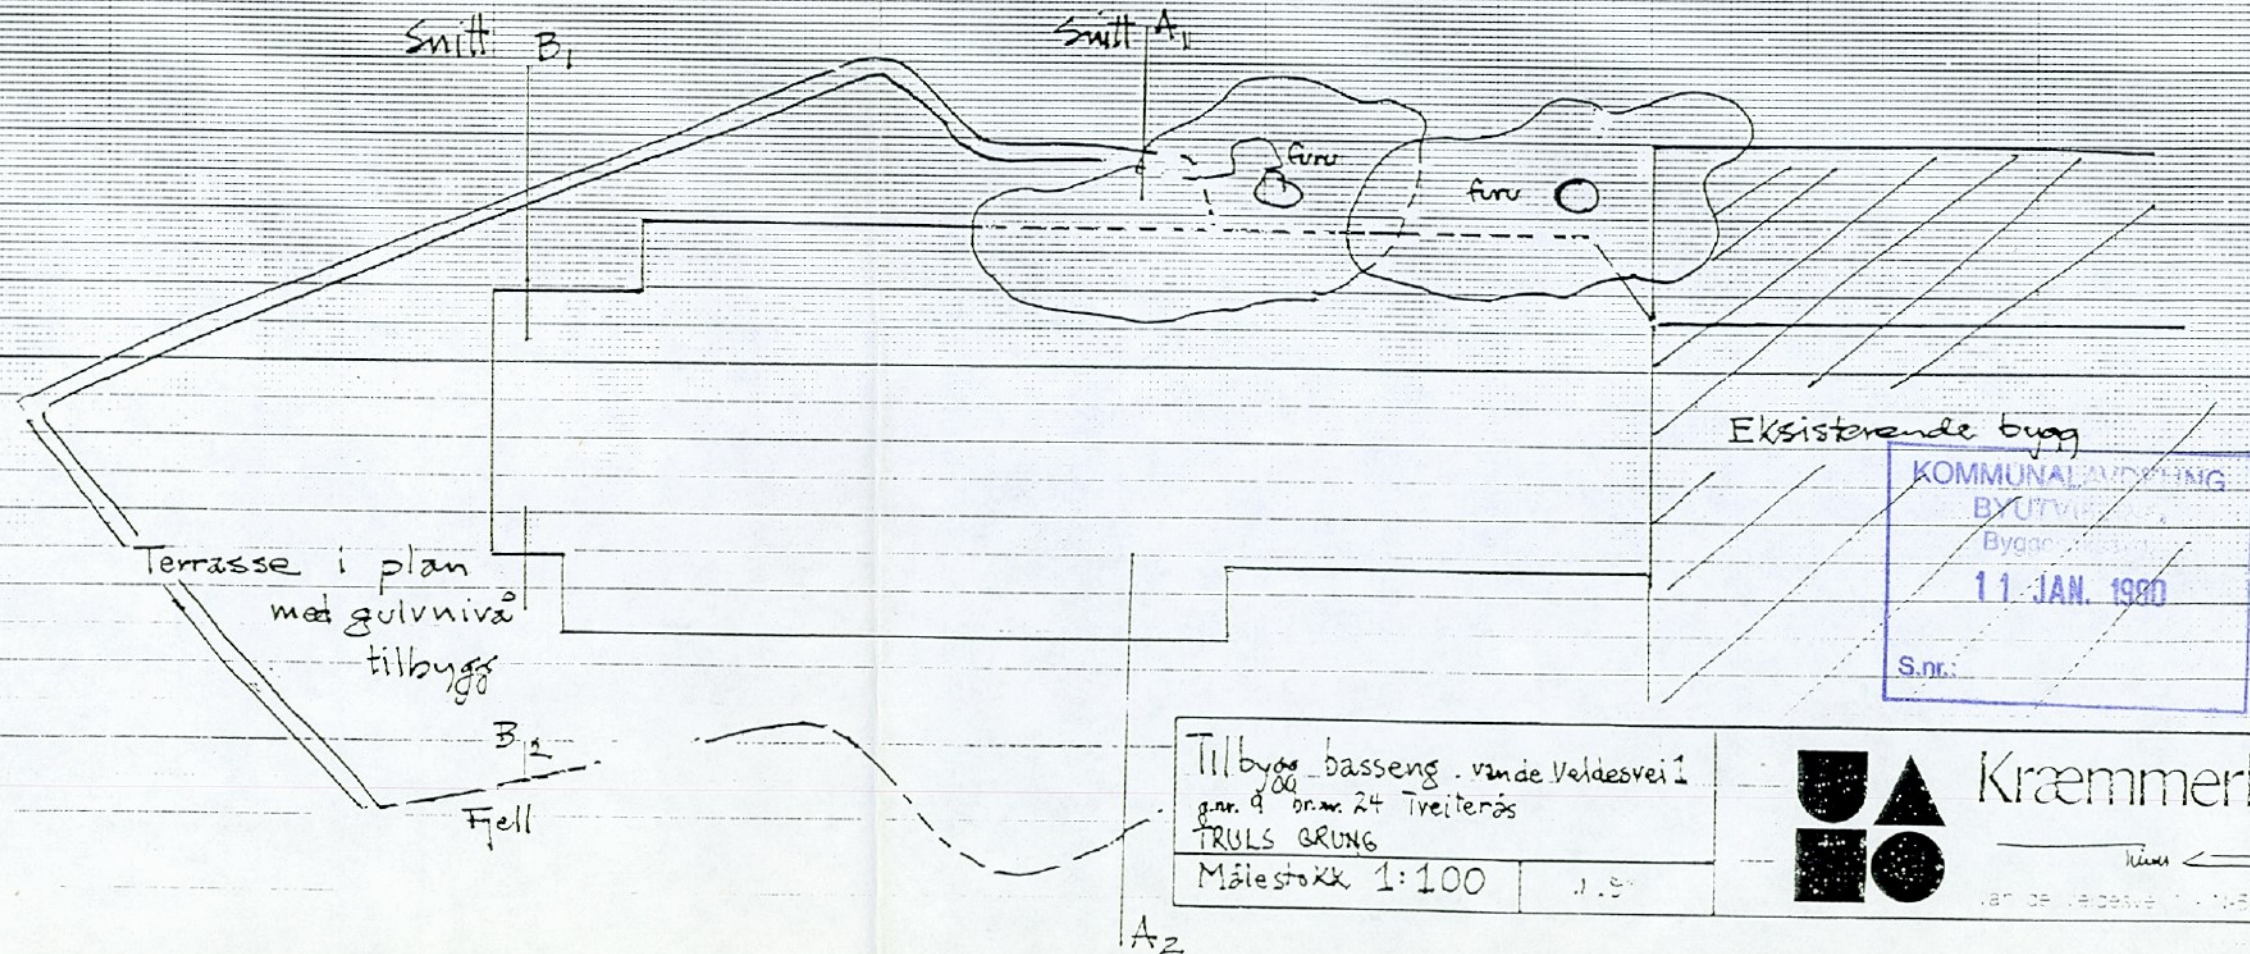 Snitt B1
Snitt A1
furu
furu
Eksisterende bygg
KOMMUNALAVDELING
11 JAN. 1980
S.nr.:
Terrasse i plan
med gulvnivå
tilbygg
B2
Fjell
Tilbygg basseng. van de Veldesvei 1
g.nr. 9 br.nr. 24 Tveiterås
TRULS GRUNG
Målestokk 1:100
Kræmmerh
A2